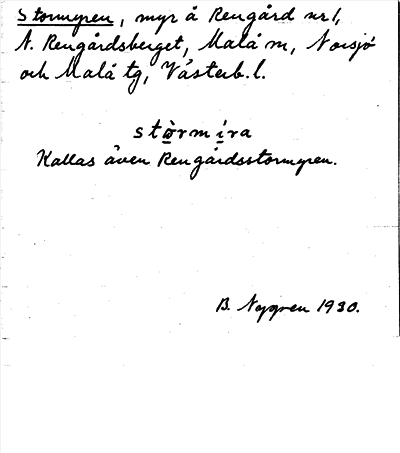 Stormyren, myr å Rengård nr 1,
N. Rengårdsberget, Malå sn, Norsjö
och Malå tg, Västerb. l.
stòrmíra
Kallas även Rengårdsstormyren.
B. Nygren 1930.